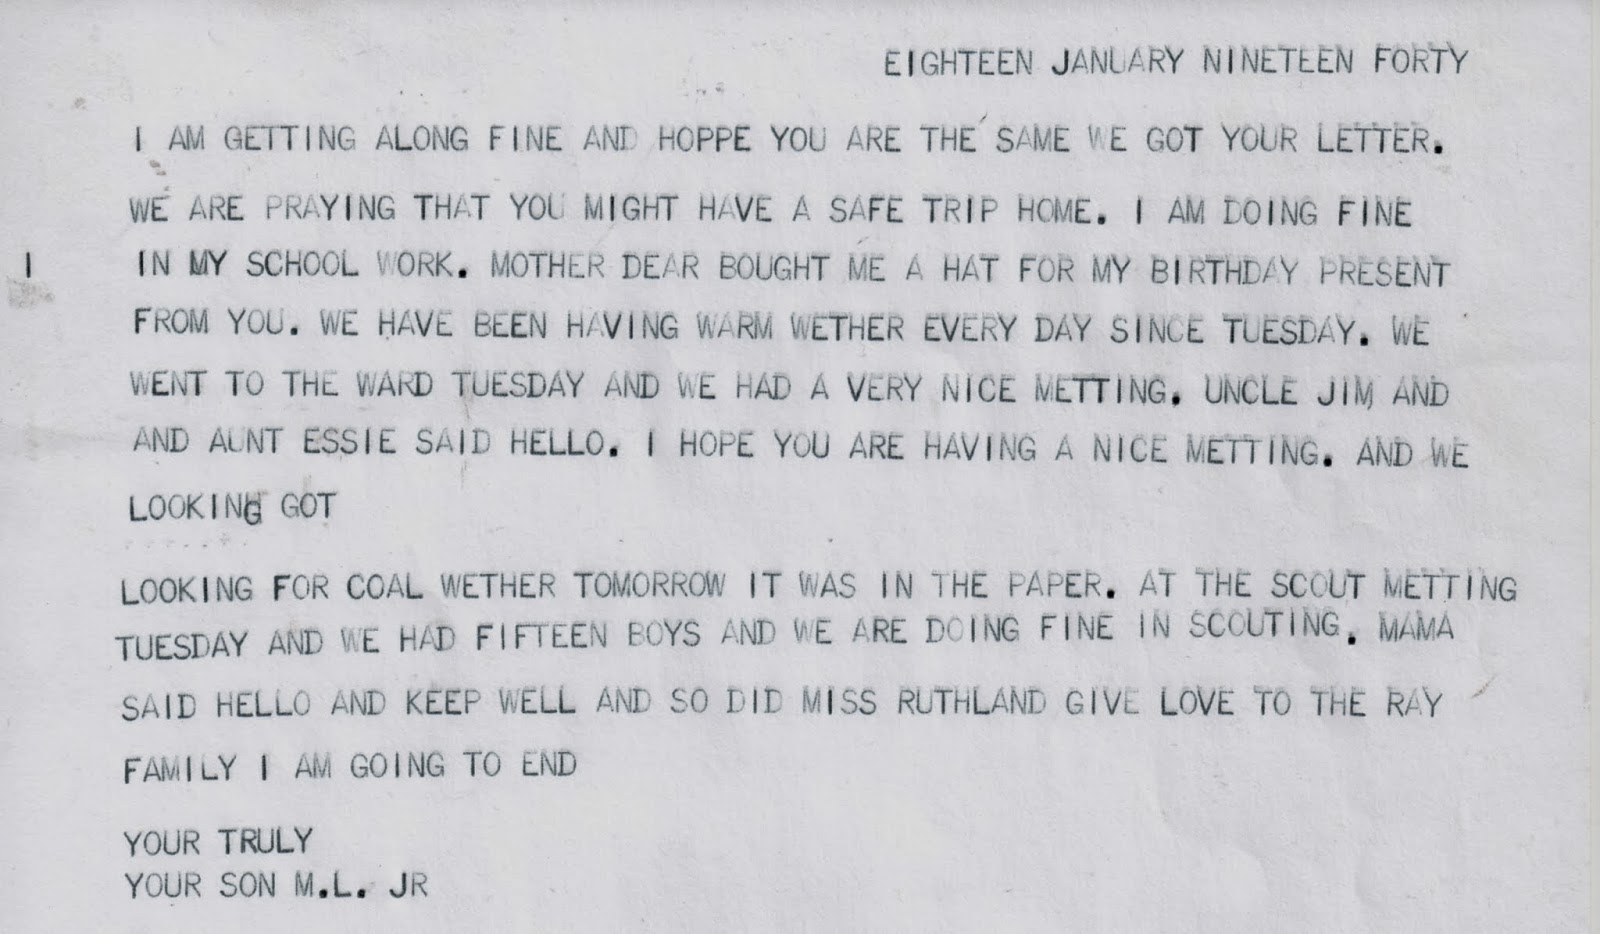 EIGHTEEN JANUARY NINETEEN FORTY
I AM GETTING ALONG FINE AND HOPPE YOU ARE THE SAME WE GOT YOUR LETTER.
WE ARE PRAYING THAT YOU MIGHT HAVE A SAFE TRIP HOME. I AM DOING FINE
I IN MY SCHOOL WORK. MOTHER DEAR BOUGHT ME A HAT FOR MY BIRTHDAY PRESENT
FROM YOU. WE HAVE BEEN HAVING WARM WETHER EVERY DAY SINCE TUESDAY. WE
WENT TO THE WARD TUESDAY AND WE HAD A VERY NICE METTING. UNCLE JIM AND
AND AUNT ESSIE SAID HELLO. I HOPE YOU ARE HAVING A NICE METTING. AND WE
LOOKING GOT
LOOKING FOR COAL WETHER TOMORROW IT WAS IN THE PAPER. AT THE SCOUT METTING
TUESDAY AND WE HAD FIFTEEN BOYS AND WE ARE DOING FINE IN SCOUTING. MAMA
SAID HELLO AND KEEP WELL AND SO DID MISS RUTHLAND GIVE LOVE TO THE RAY
FAMILY I AM GOING TO END
YOUR TRULY
YOUR SON M.L. JR